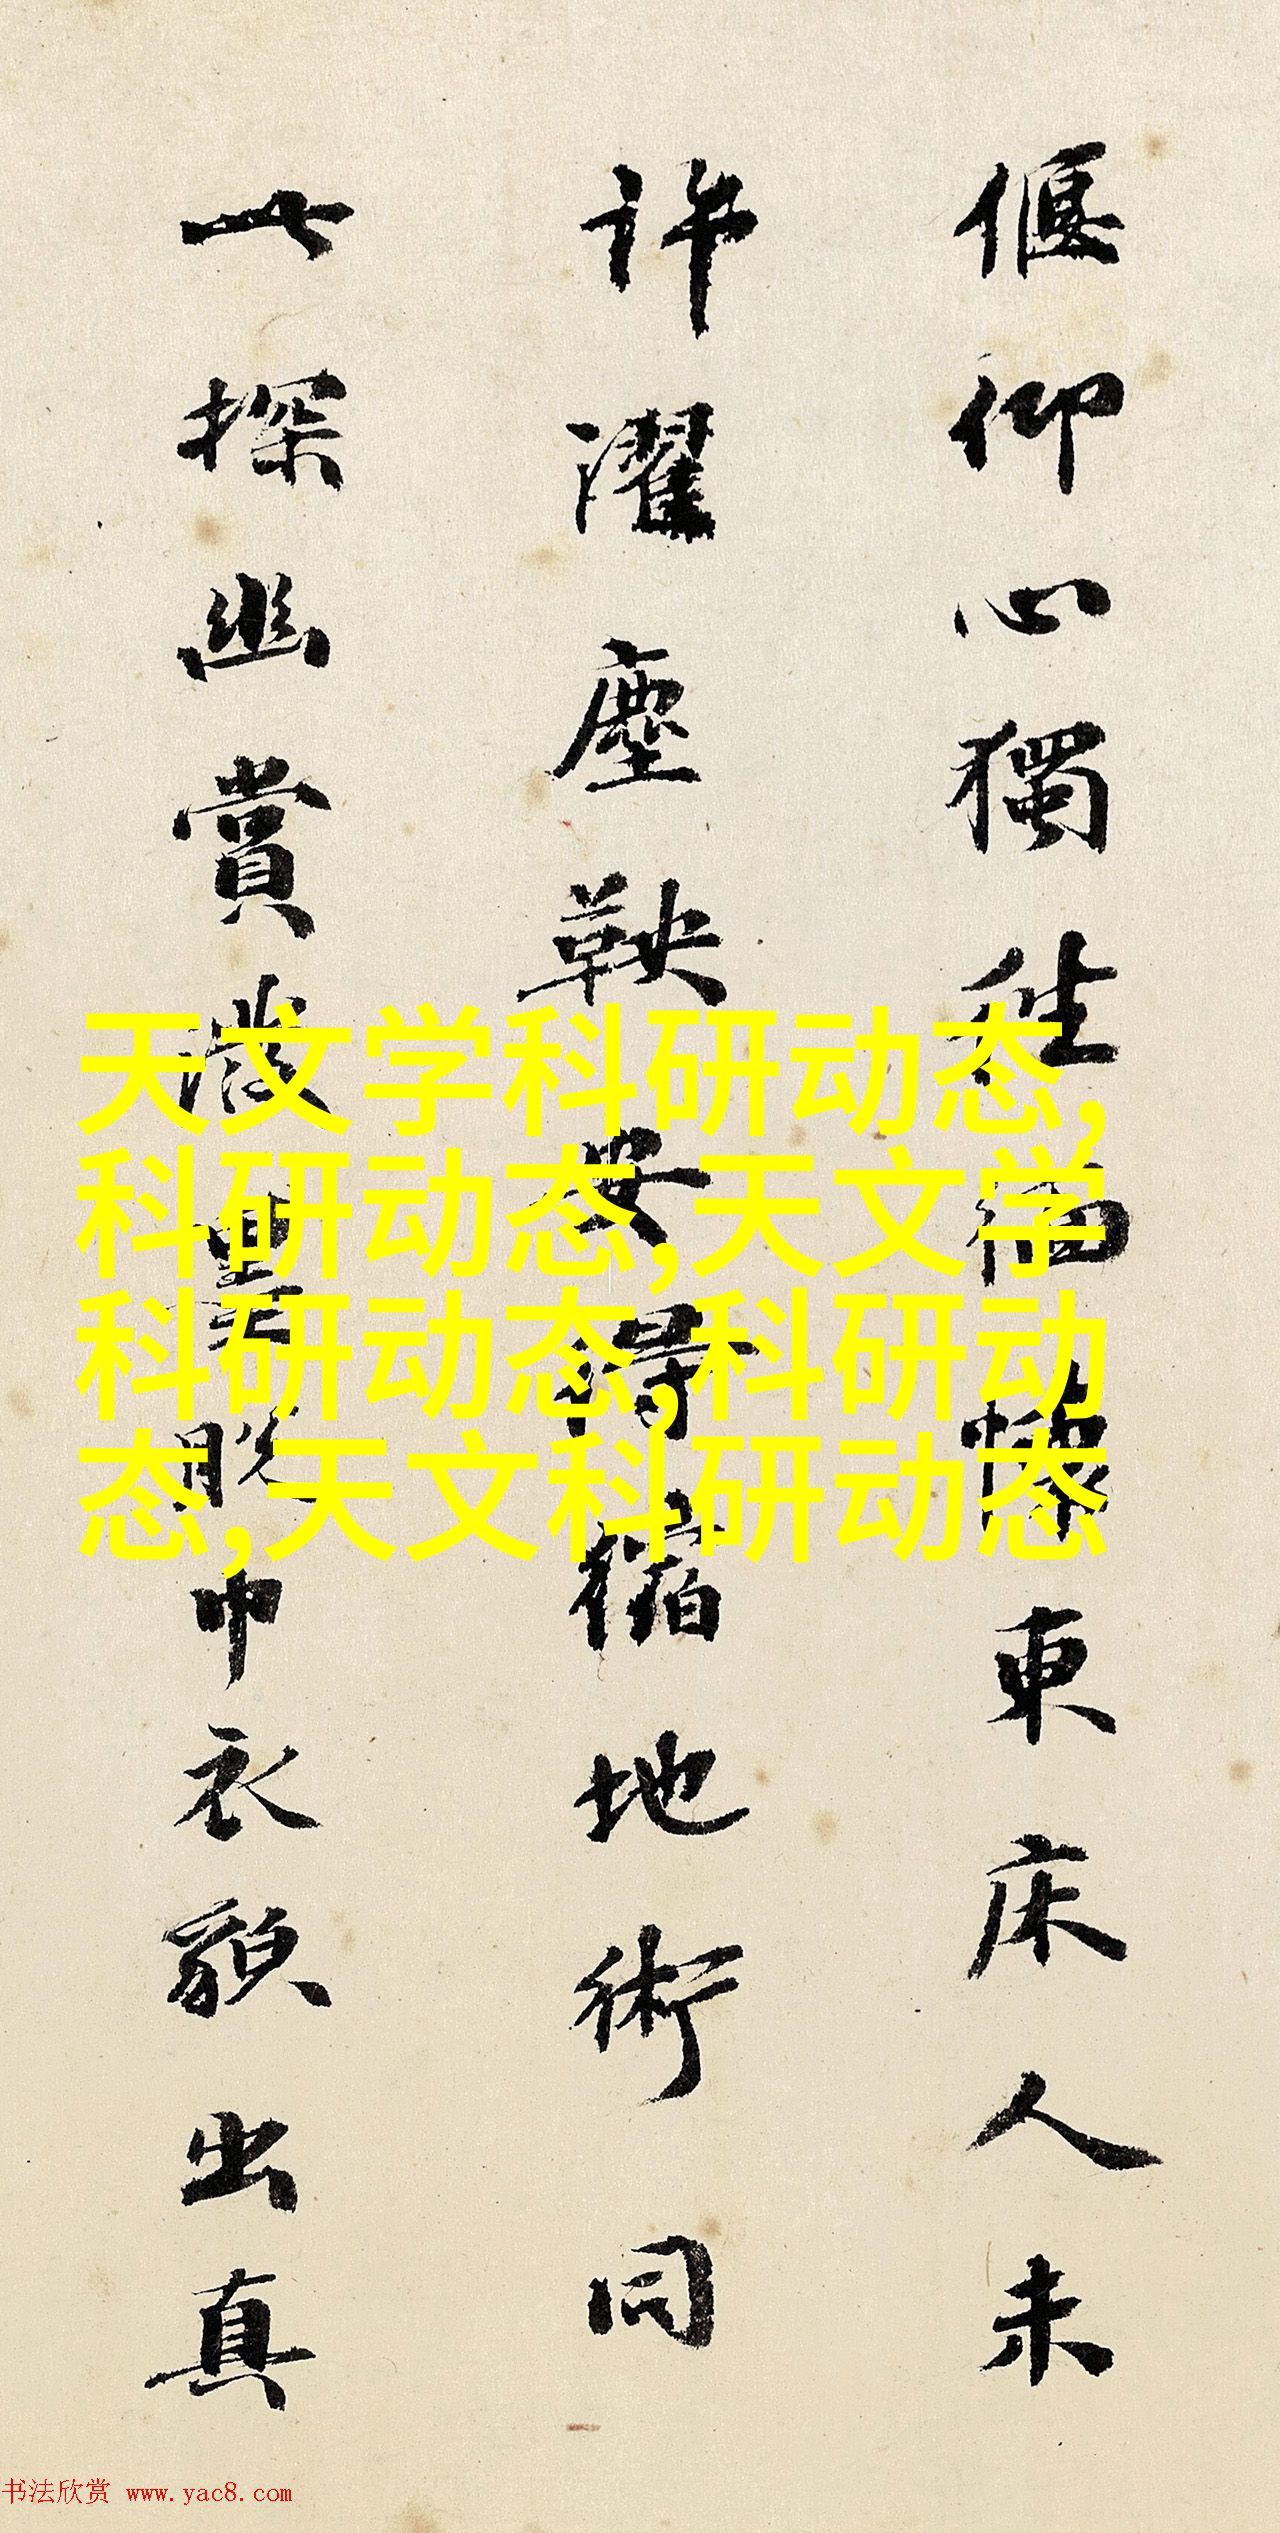 偃仰心獨往緬懷東床人未
許濯塵鞅安得縮地術同
此探幽賞潑墨脫巾衣貌出真
天文学科研动态,
科研动态,天文学
科研动态,科研动
态,天文科研动态
书法欣赏 www.yac8.com